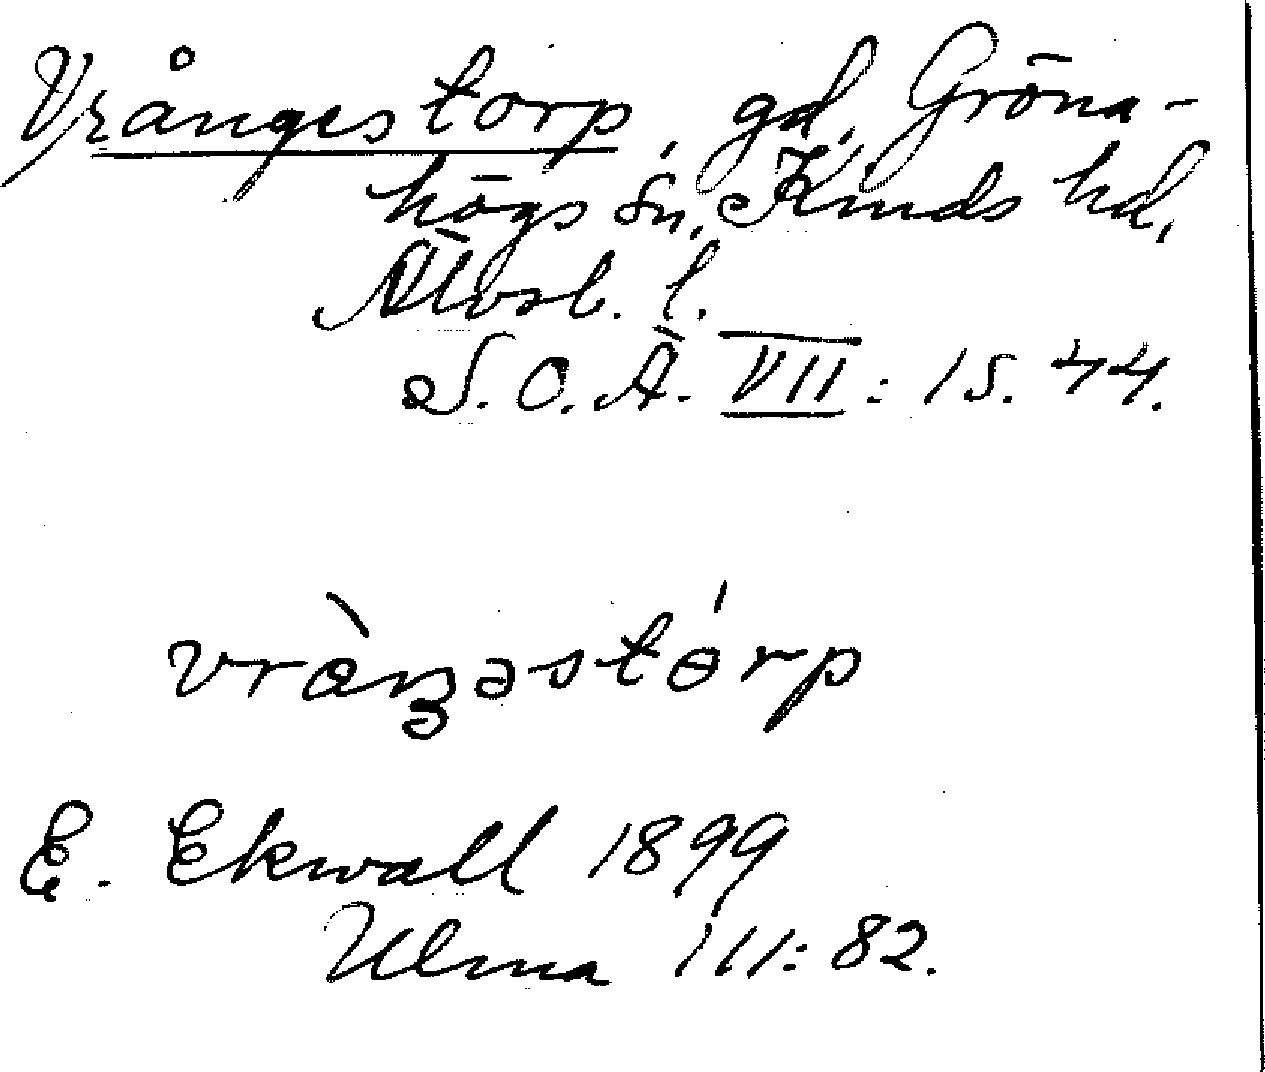 Vrångestorp, gd, Gröna-
högs sn, Kinds hd,
Älvsb. l.
S.O.Ä. VII: 1 S. 44.
vràŋəstórp
E. Ekwall 1899
Ulma 111: 82.